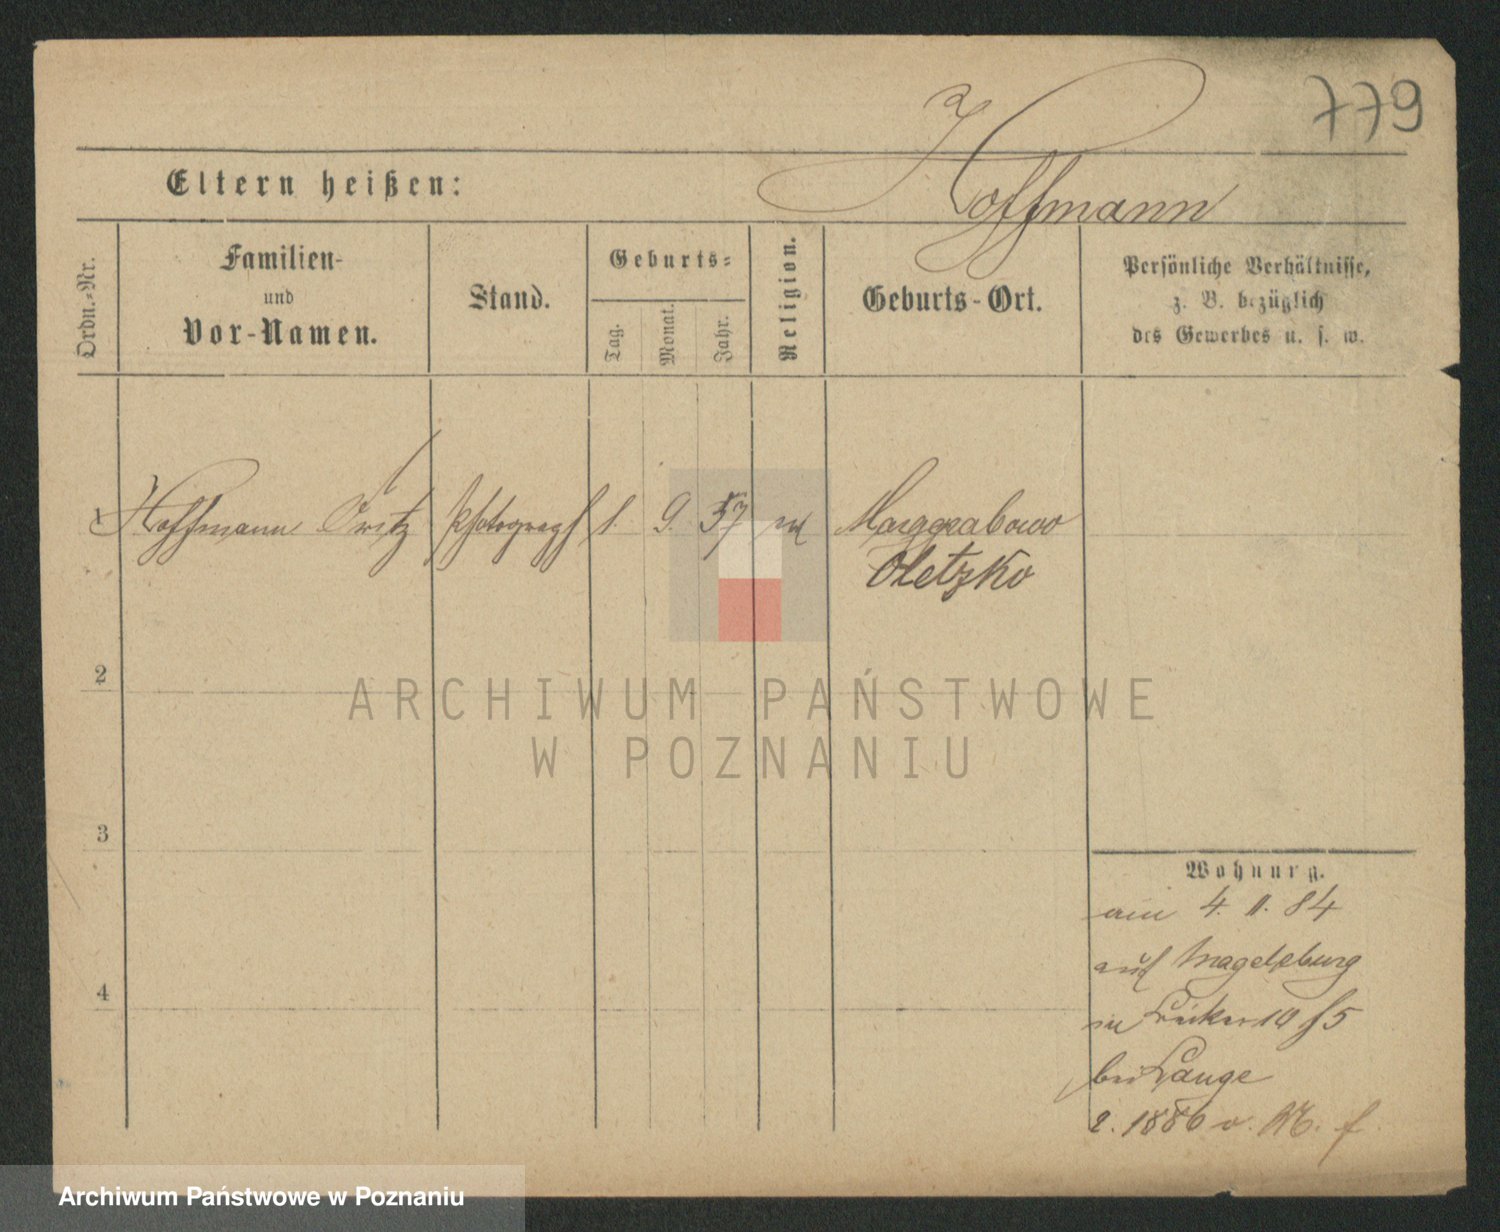 779
Hoffmann
Eltern heißen:
Ordn.-Nr.
Familien-
und
Vor-Namen.
Stand.
Geburts-
Tag.
Monat.
Jahr.
Religion.
Geburts-Ort.
Persönliche Verhältnisse,
z. B. bezüglich
des Gewerbes u. s. w.
1 Hoffmann Photograph 1. 9. 57 Marggrabowo
Oletzko
2
3
4
Wohnung.
4. 11. 84
auf Magdeburg
10
bei Lange
2. 1886 v.
ARCHIWUM PAŃSTWOWE
W POZNANIU
Archiwum Państwowe w Poznaniu